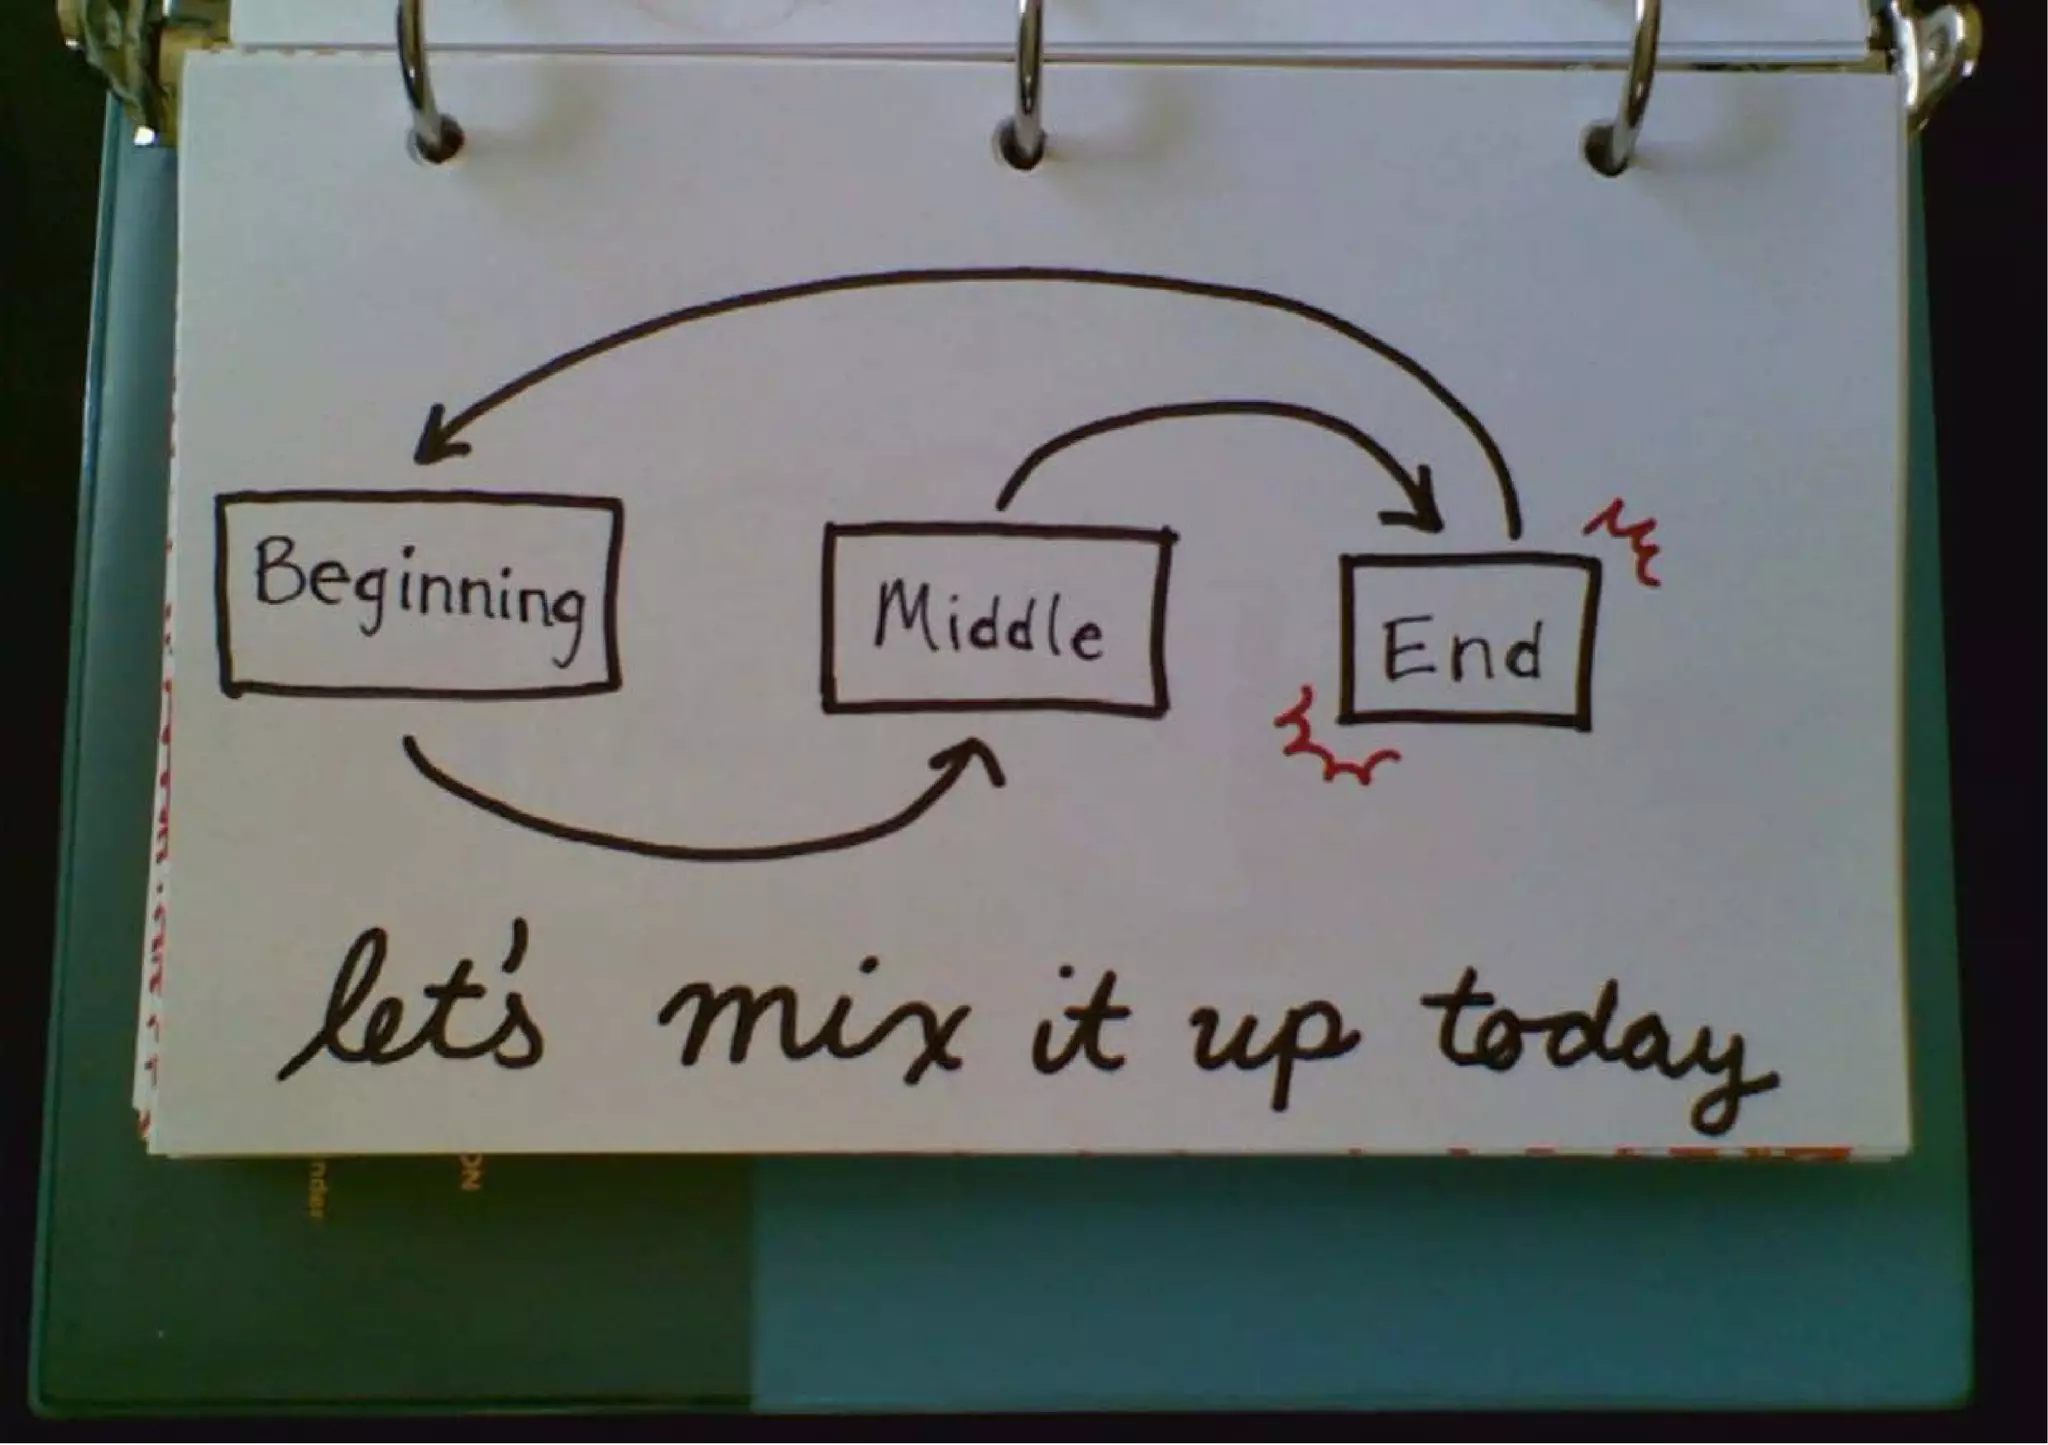 Beginning
Middle
End
let's mix it up today
ON
nder